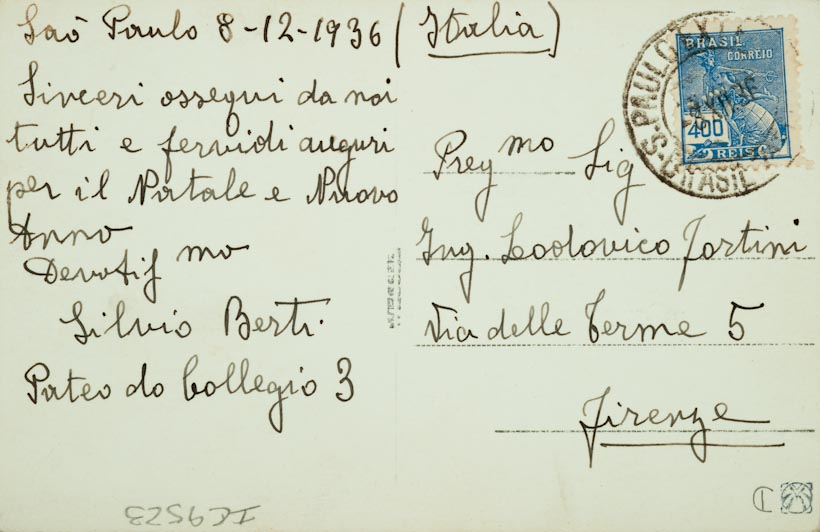 Saõ Paulo 8-12-1936 (Italia)
Sinceri ossequi da noi
tutti e fervidi auguri
per il Natale e Nuovo
Anno
Devotis mo
Silvio Berti
Pateo do Collegio 3
Preg mo Sig
Ing. Lodovico Fortini
Via delle Terme 5
Firenze
BRASIL
CORREIO
400
REIS
S. PAULO
BRASIL
IC9523